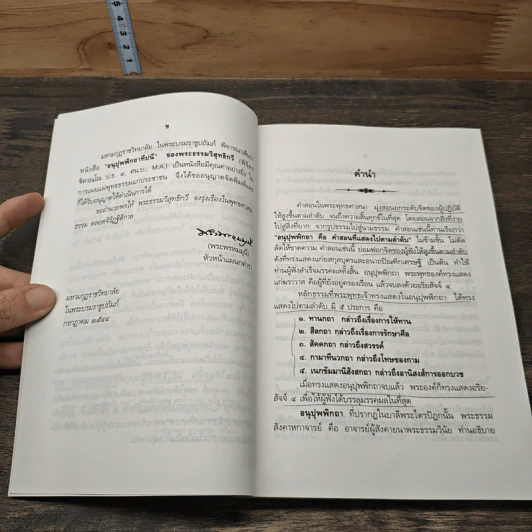 5
4
3
2
1
ช
มหามกุฏราชวิทยาลัย ในพระบรมราชูปถัมภ์ พิจารณาเห็นว่า
หนังสือ "อนุปุพพิกถาทีปนี" ของพระธรรมวิสุทธิกวี
เป็นหนังสือมีคุณค่าอย่างยิ่ง ใน
การเผยแผ่พุทธธรรมแก่ประชาชน จึงได้ขออนุญาตจัดพิมพ์
ก็ได้รับอนุญาตให้ดำเนินการได้
ขออำนวยพรให้ พระธรรมวิสุทธิกวี จงรุ่งเรืองในพุทธศาสน
ธรรม ตลอดจิรัฏฐิติกาล
(พระเทพมุนี)
หัวหน้าแผนกตำรา
มหามกุฏราชวิทยาลัย
ในพระบรมราชูปถัมภ์
กรกฎาคม ๒๕๔๔
คำนำ
คำสอนในพระพุทธศาสนา มุ่งสอนยกระดับจิตของผู้ปฏิบัติ
ให้สูงขึ้นตามลำดับ จนถึงความสิ้นทุกข์ในที่สุด โดยสอนจากสิ่งที่ง่าย
ไปสู่สิ่งที่ยาก จากรูปธรรมไปสู่นามธรรม คำสอนเช่นนี้ท่านเรียกว่า
"อนุปุพพิกถา คือ คำสอนที่แสดงไปตามลำดับ" ไม่ข้ามขั้น ไม่ตัด
ลัดให้ขาดความ คำสอนเช่นนี้ ย่อมฟอกจิตของผู้ฟังให้สูงขึ้นตามลำดับ
ดังที่ทรงแสดงแก่ยสกุลบุตรและอนาถบิณฑิกเศรษฐี เป็นต้น ทำให้
ท่านผู้ฟังสำเร็จมรรคผลทั้งสิ้น อนุปุพพิกถา พระพุทธองค์ทรงแสดง
แก่ฆราวาส คือผู้ที่ยังอยู่ครองเรือน แล้วจบลงด้วยอริยสัจจ์ ๔
หลักธรรมที่พระพุทธเจ้าทรงแสดงในอนุปุพพิกถา ได้ทรง
แสดงไปตามลำดับ มี ๕ ประการ คือ
๑. ทานกถา กล่าวถึงเรื่องการให้ทาน
๒. สีลกถา กล่าวถึงเรื่องการรักษาศีล
๓. สัคคกถา กล่าวถึงสวรรค์
๔. กามาทีนวกถา กล่าวถึงโทษของกาม
๕. เนกขัมมานิสังสกถา กล่าวถึงอานิสงส์การออกบวช
เมื่อทรงแสดงอนุปุพพิกถาจบแล้ว พระองค์ก็ทรงแสดงอริย-
สัจจ์ ๔ เพื่อให้ผู้ฟังได้บรรลุมรรคผลในที่สุด
อนุปุพพิกถา ที่ปรากฏในบาลีพระไตรปิฎกนั้น พระธรรม
สังคาหกาจารย์ คือ อาจารย์ผู้สังคายนาพระธรรมวินัย ท่านอธิบาย